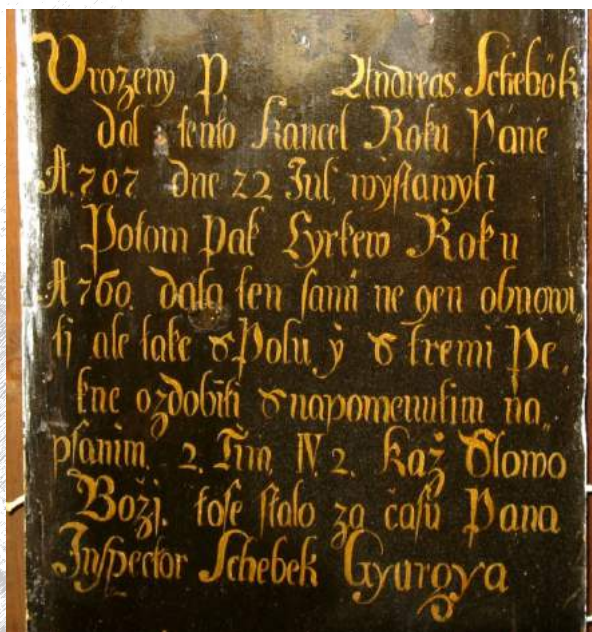 Urozeny P. Andreas Schebök
dal tento Kancel Roku Páne
A. 707. dne 22 Jul, wýstawyti
Potom Pak Cyrkew Roku
A 760. dala ten samí ne gen obnowi„
ti ale take s Polu ý s tremi Pe„
kne ozdobiti s napomenutim na„
psanim. 2. Tim. IV. 2. Kaž Slowo
Božj. tose stalo za časů Pana
Inspector Schebek Gyurgya